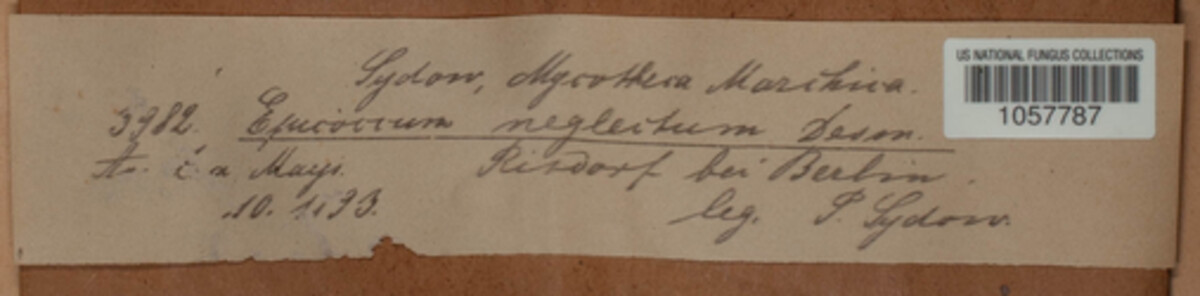 Sydow, Mycotheca Marchica.
3982. Epicoccum neglectum Desm.
Mays. Rixdorf bei Berlin.
.10. leg. P. Sydow.
US NATIONAL FUNGUS COLLECTIONS
1057787